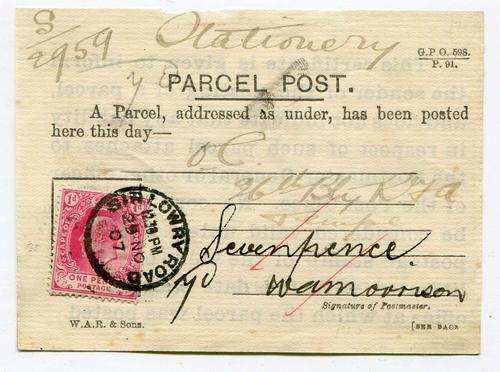 S/2959 Stationery
G.P.O. 598.
P. 91.
7d
PARCEL POST.
A Parcel, addressed as under, has been posted
here this day—
O C.
96th Bty R.F.A
CAPE OF
1d
ONE PENNY
POSTAGE
SIR LOWRY ROAD
12.30 PM
29 NO
07
Sevenpence.
7d
Signature of Postmaster.
W.A.R. & Sons.
[SEE BACK